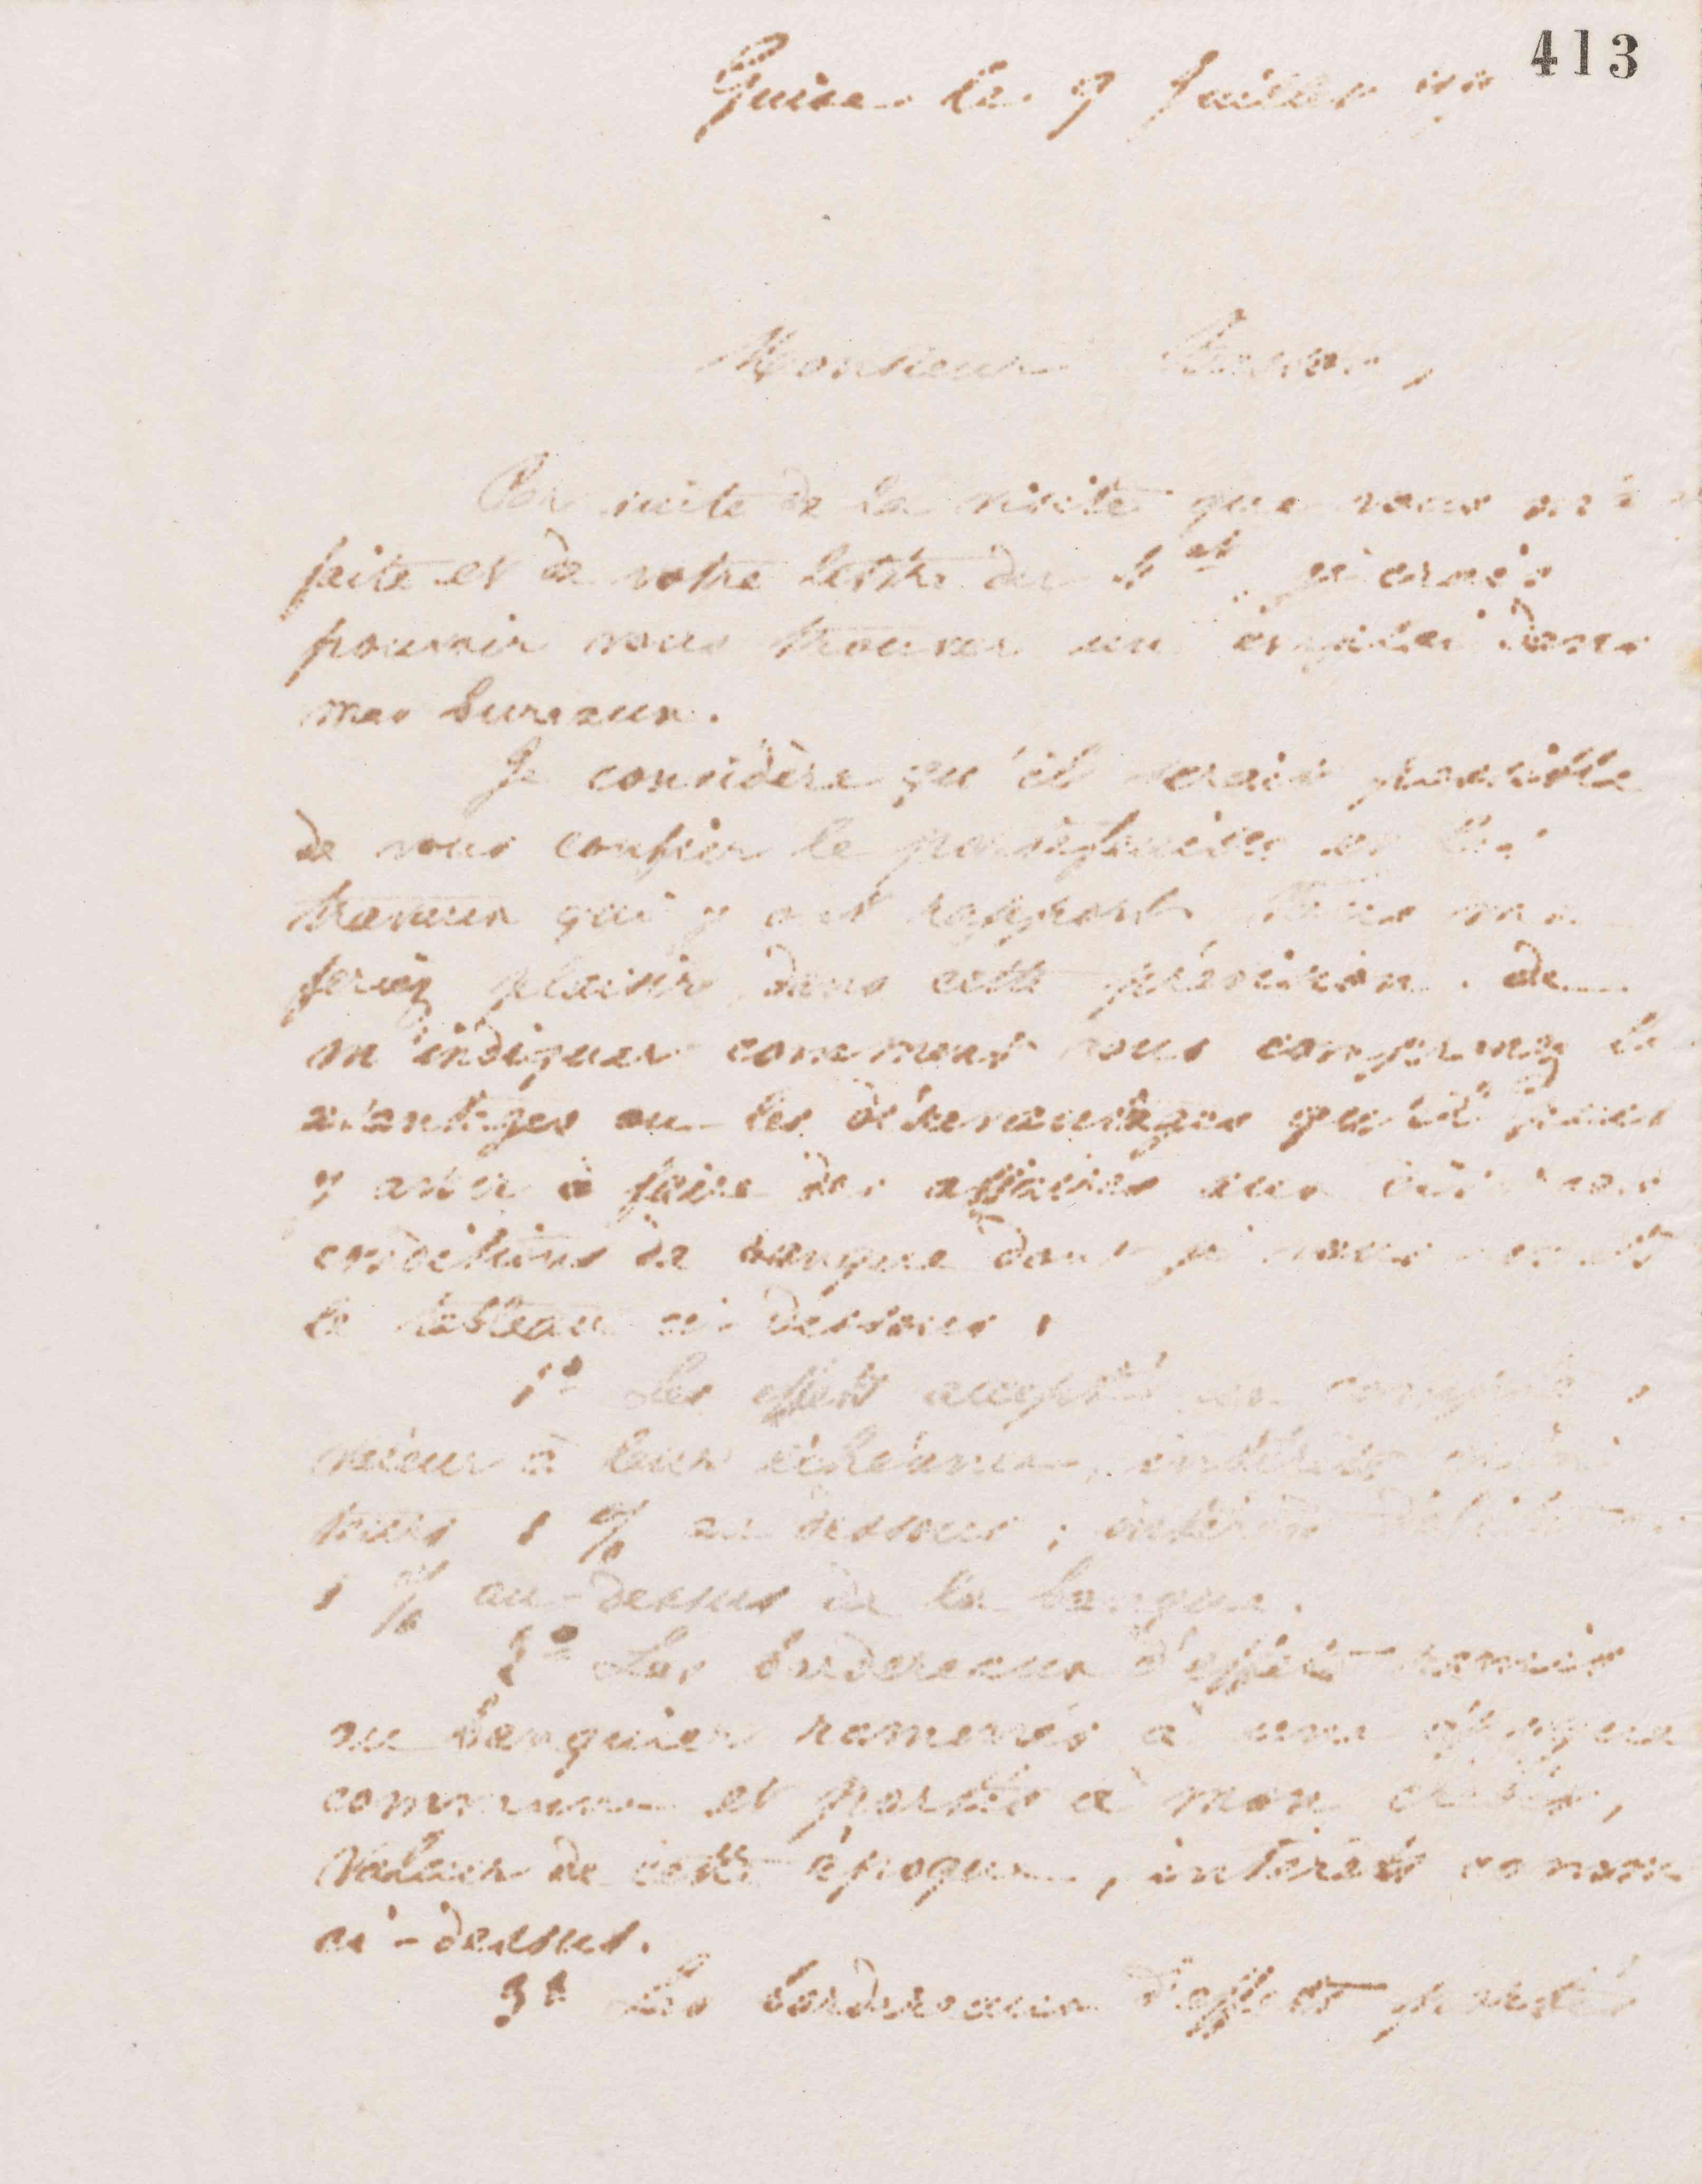 413
Guise le 9 Juillet
Monsieur
Par suite de la visite que vous m'a
faite et de votre lettre du
pouvoir vous trouver un emploi dans
mes bureaux.
Je considère qu'il serait possible
de vous confier le portefeuille et les
travaux qui y ont rapport. Vous me
feriez plaisir, dans cette prévision, de
m'indiquer comment vous comprenez les
avantages ou les désavantages qu'il peut
y avoir à faire des affaires aux
conditions de banque dont je vous
le tableau ci-dessous :
1° Les effets acceptés
valeur à leur échéance, intérêts
1 % au dessous ; intérêts
1 % au-dessus de la banque.
2° Les bordereaux d'effets remis
au banquier ramenés à une époque
commune et portés à mon crédit,
valeur de cette époque, intérêts comme
ci-dessus.
3° Les bordereaux d'effets portés